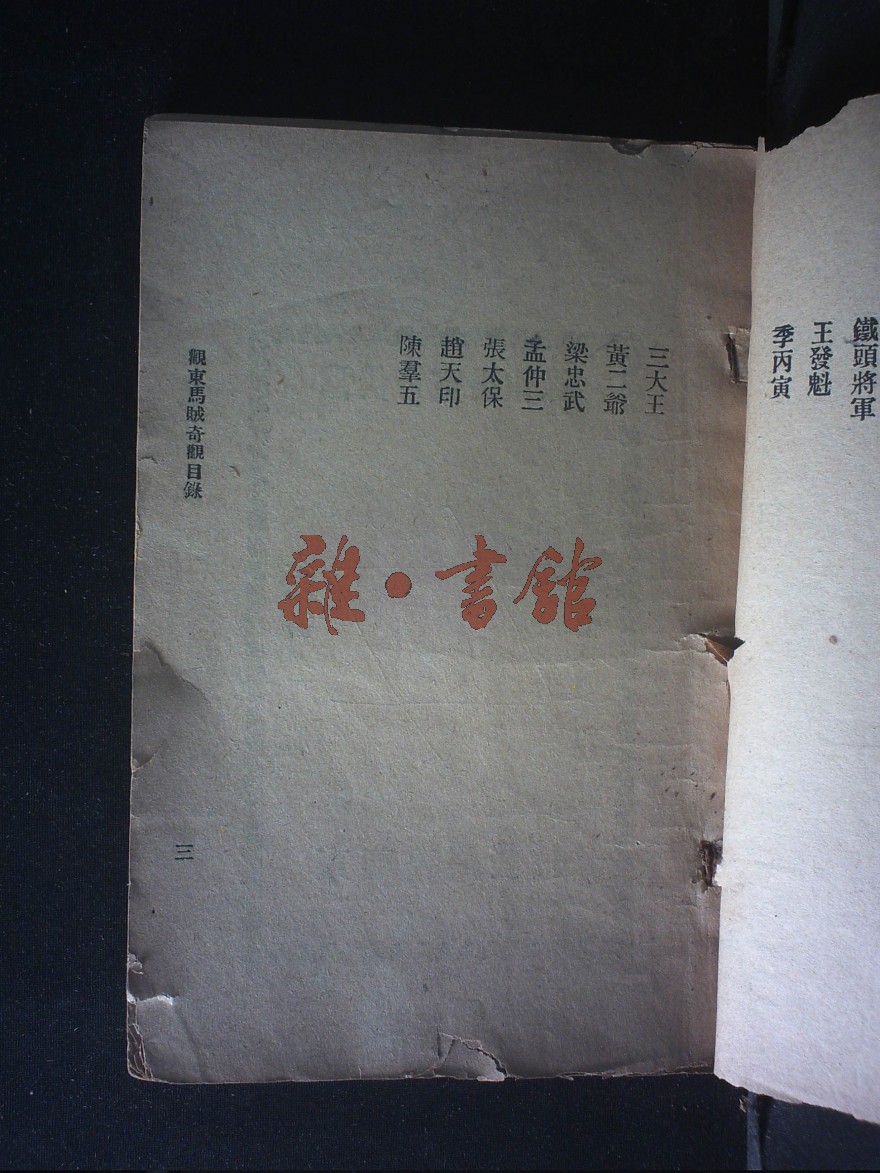 鐵頭將軍
王發魁
季丙寅
三大王
黃二爺
梁忠武
孟仲三
張太保
趙天印
陳羣五
觀東馬賊奇觀目錄
三
雜·書館